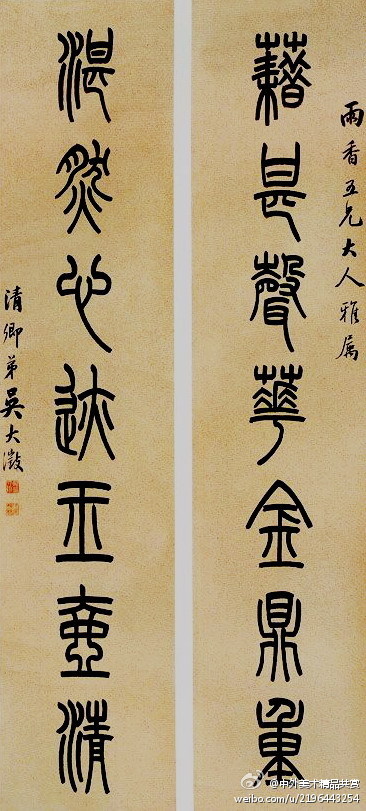 雨香五兄大人雅属
藉甚聲華金鼎重
湛然心迹玉壺清
清卿弟吳大澂
@中外美术精品共赏
weibo.com/u/2196443254